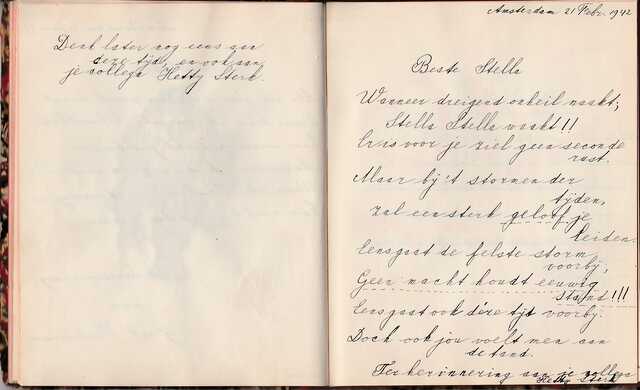 Denk later nog eens aan
deze tijd, en ook aan
je collega Hetty Sterk.
Amsterdam 21 Febr. 1942
Beste Stella
Wanneer dreigend onheil naakt;
Stella Stella waakt!!
Er is voor je ziel geen seconde
rust.
Maar bij 't stormen der
tijden,
zal een sterk geloof je
leiden.
Eens gaat de felste storm
voorbij,
Geen macht houdt eeuwig
stand!!!
Eens gaat ook déze tijd voorbij.
Doch ook jou voelt men aan
de tand.
Ter herinnering aan je collega
Hetty Sterk